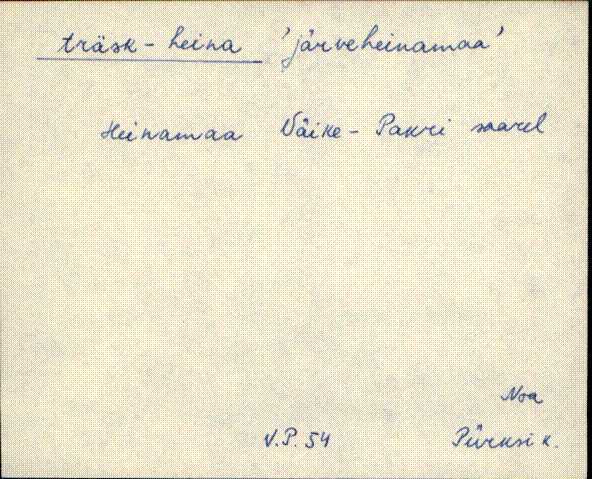 träsk - heina 'järveheinamaa'
Heinamaa Väike - Pakri saarel
Noa
V.P. 54 Pürksi k.